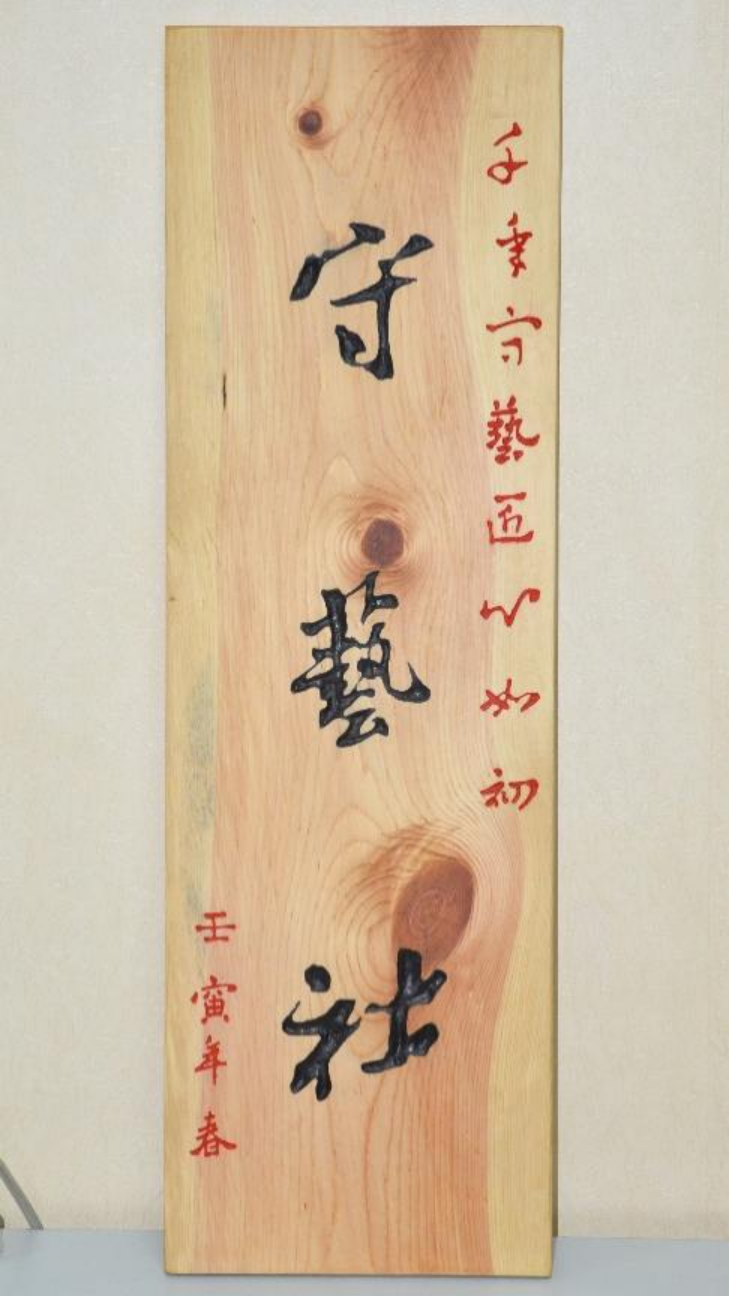 千年守藝匠心如初
守藝社
壬寅年春